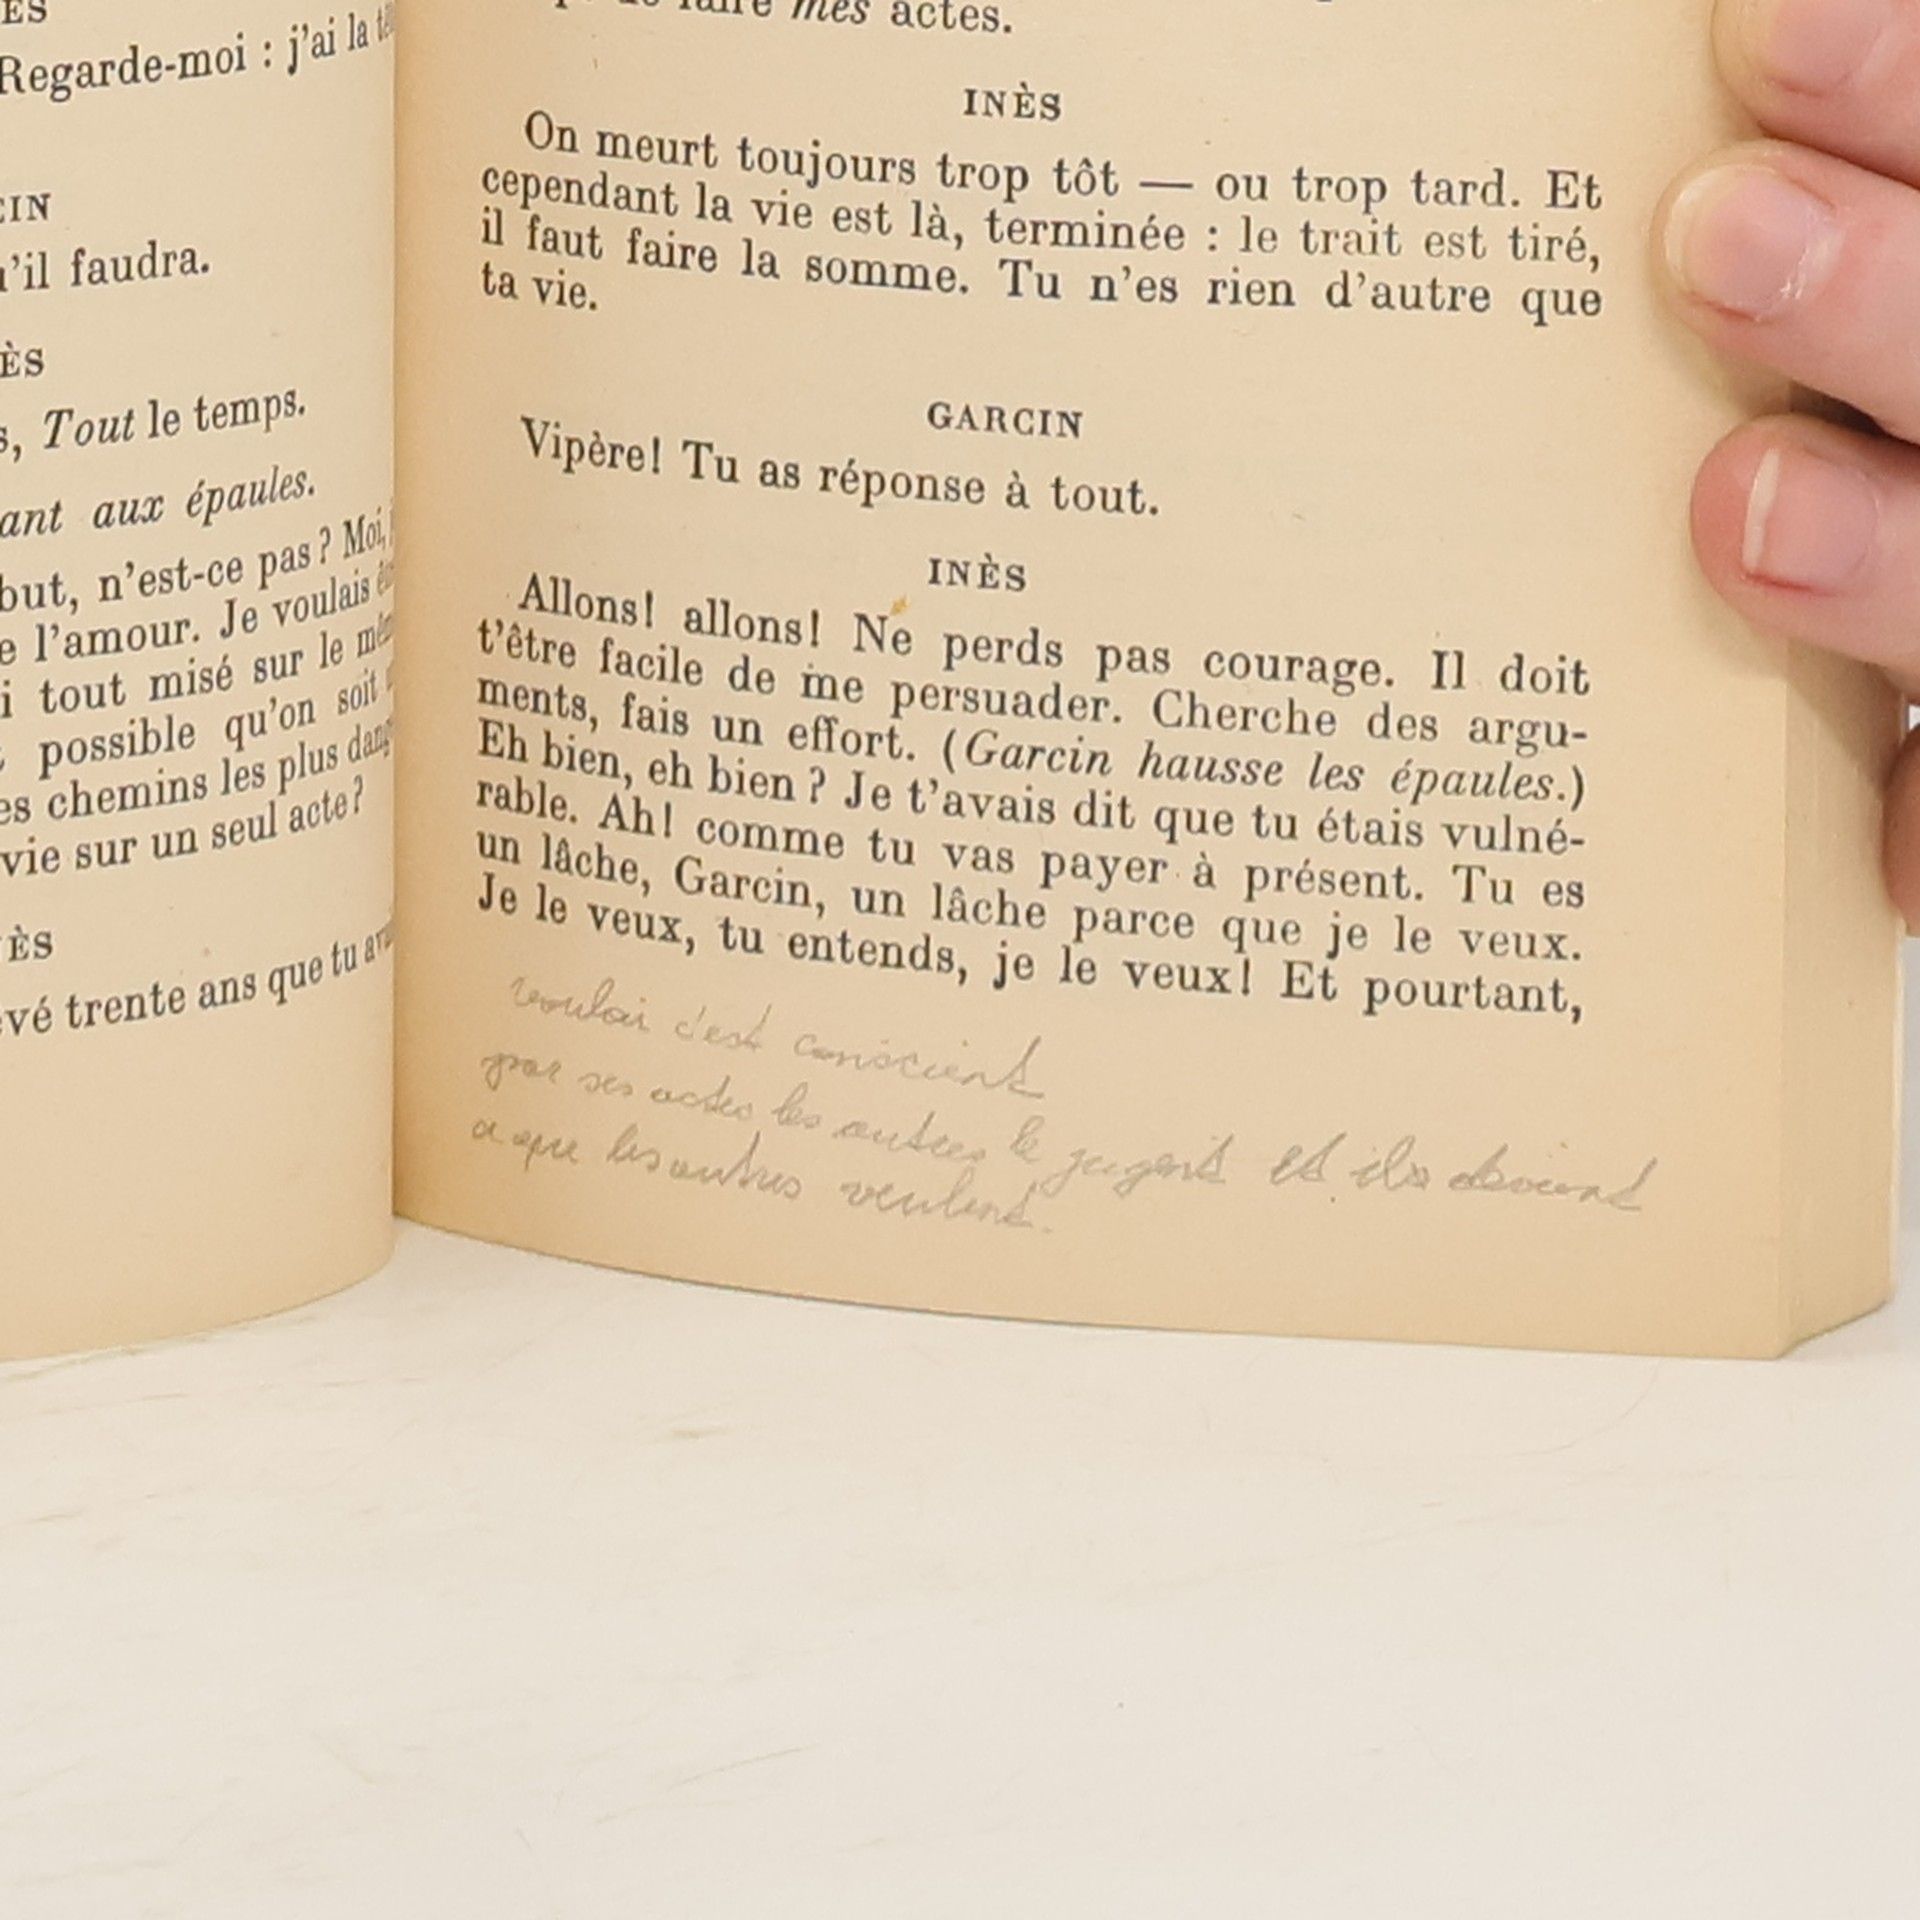 ES
Regarde-moi : j'ai la
CIN
u'il faudra.
ÈS
s, Tout le temps.
ant aux épaules.
but, n'est-ce pas ? Moi,
e l'amour. Je voulais
i tout misé sur le
possible qu'on soit
es chemins les plus
vie sur un seul acte ?
ÈS
evé trente ans que tu
faire mes actes.
INÈS
On meurt toujours trop tôt — ou trop tard. Et
cependant la vie est là, terminée : le trait est tiré,
il faut faire la somme. Tu n'es rien d'autre que
ta vie.
GARCIN
Vipère! Tu as réponse à tout.
INÈS
Allons! allons! Ne perds pas courage. Il doit
t'être facile de me persuader. Cherche des argu-
ments, fais un effort. (Garcin hausse les épaules.)
Eh bien, eh bien ? Je t'avais dit que tu étais vulné-
rable. Ah! comme tu vas payer à présent. Tu es
un lâche, Garcin, un lâche parce que je le veux.
Je le veux, tu entends, je le veux! Et pourtant,
vouloir c'est conscient
par ses actes les autres le jugent et ils
que les autres veulent.